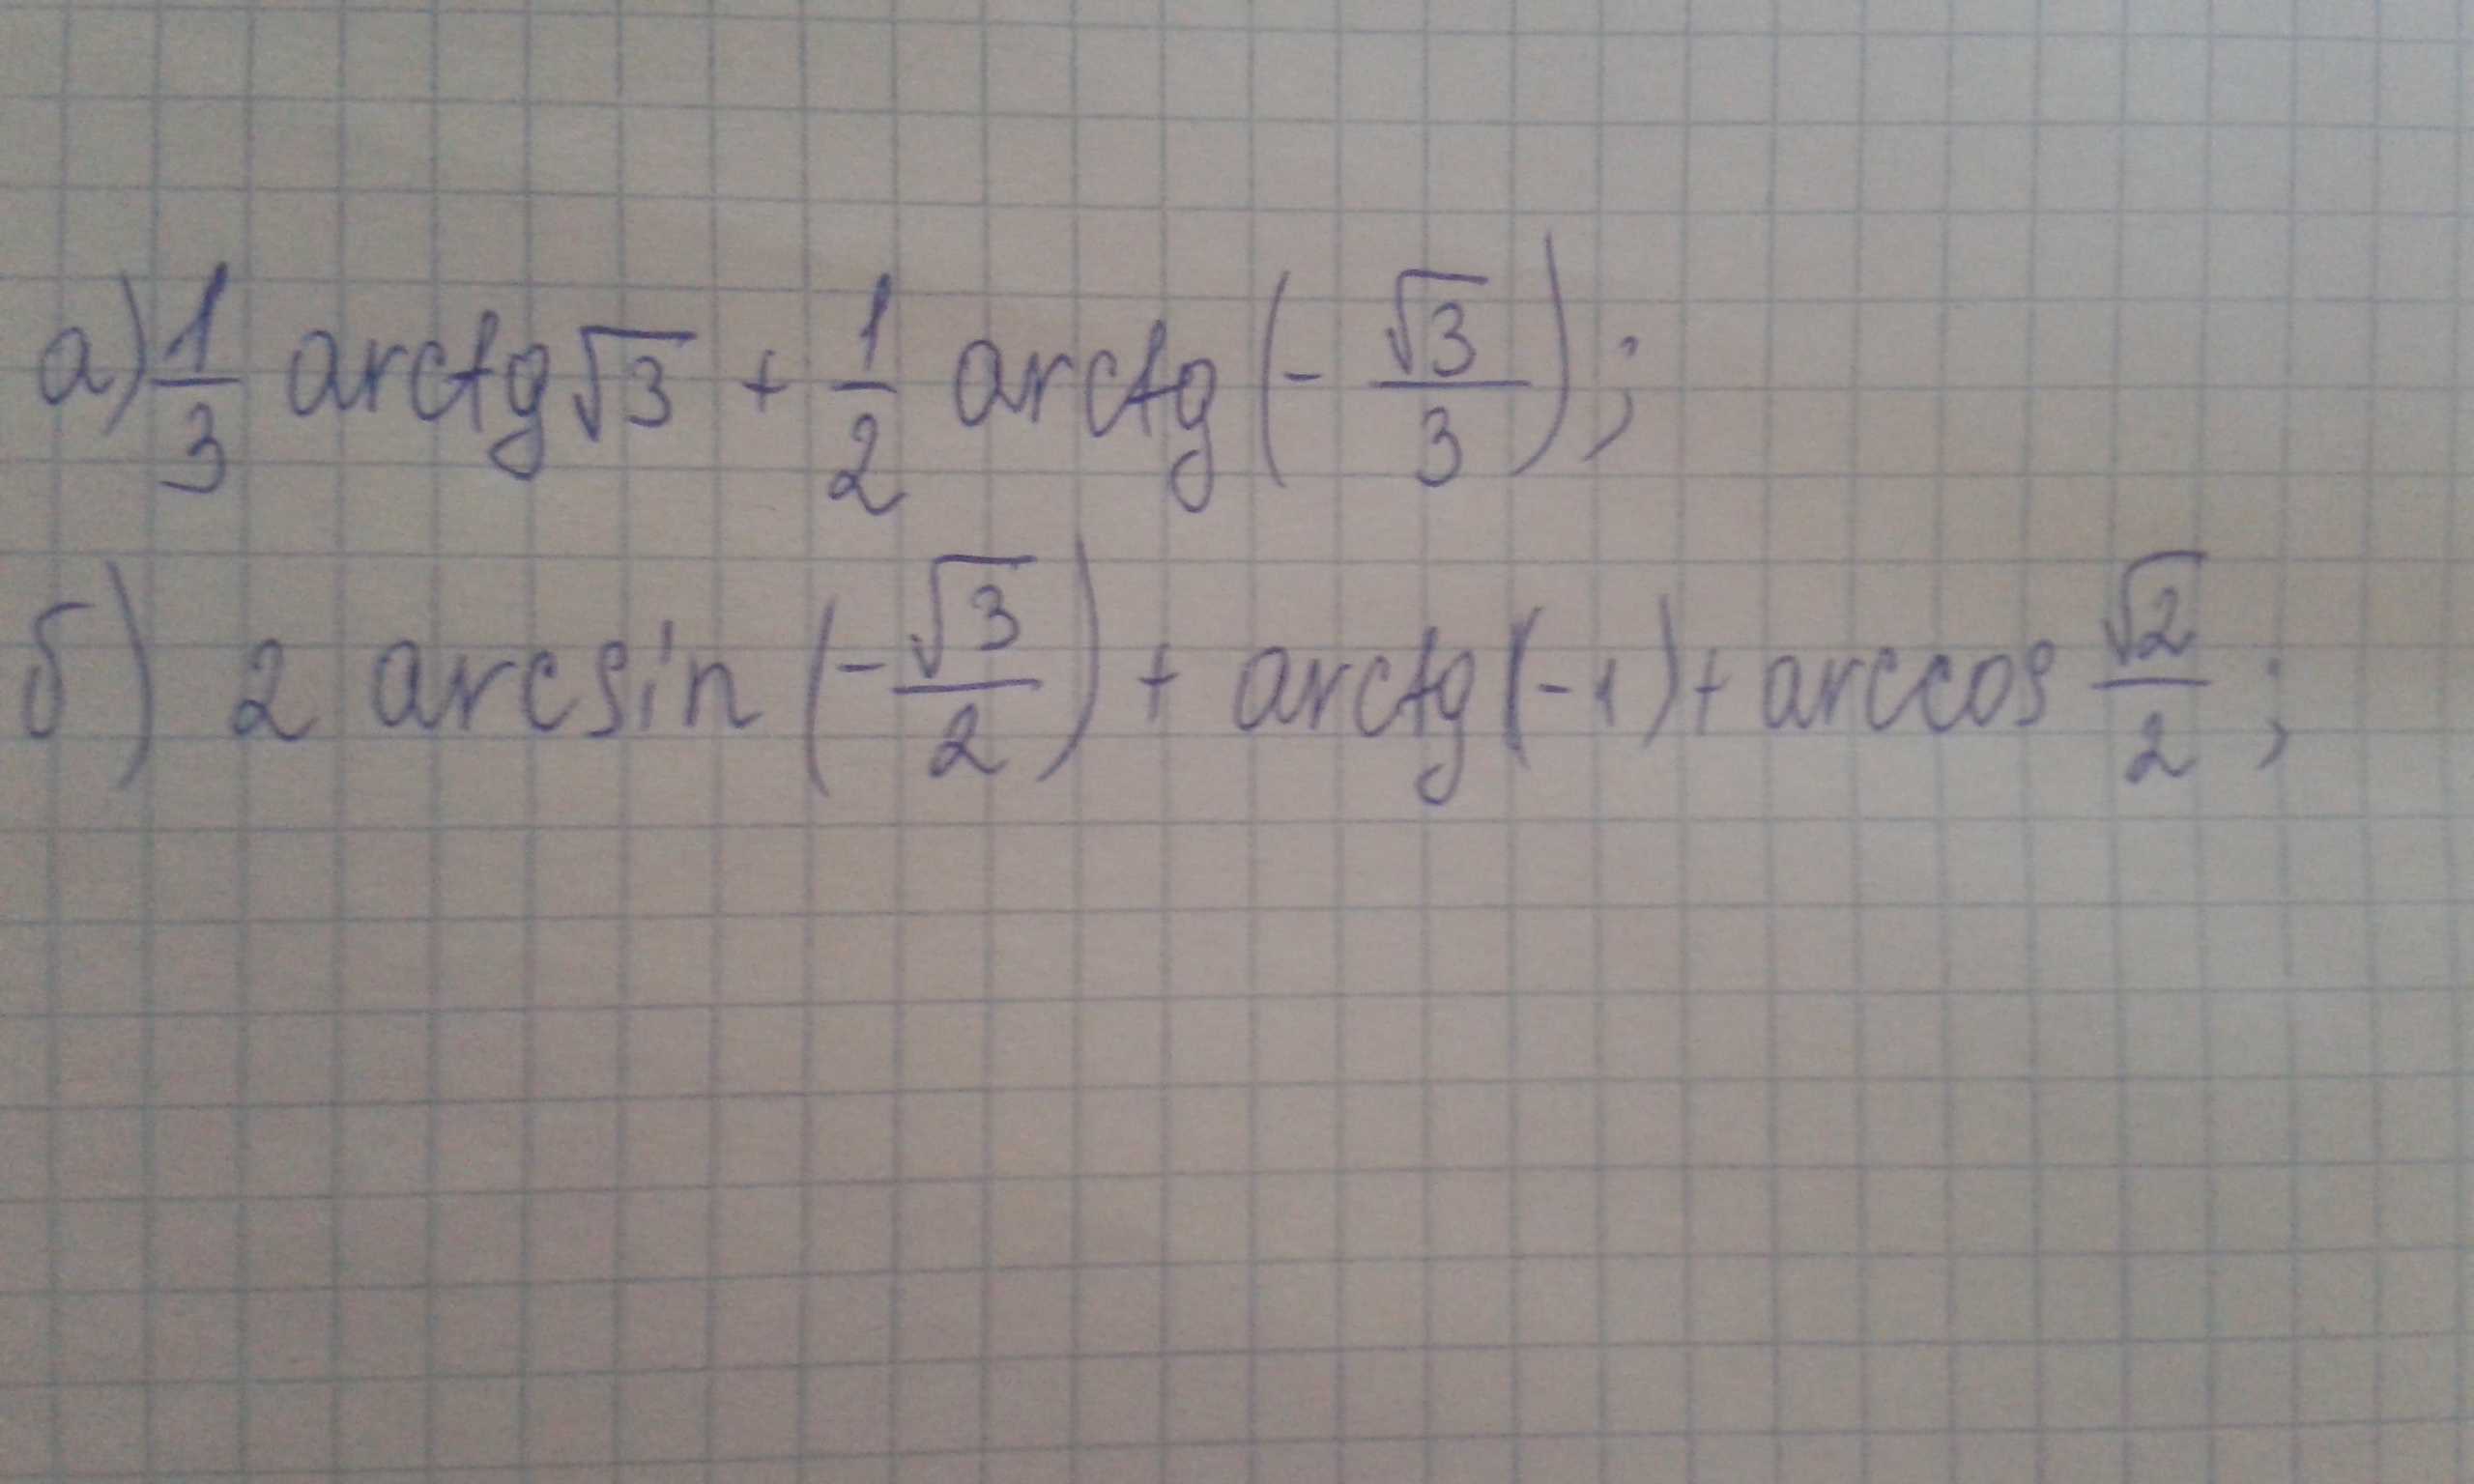 а) 1/3 arctg √3 + 1/2 arctg (- √3/3);
б) 2 arcsin (-√3/2) + arctg (-1) + arccos √2/2;